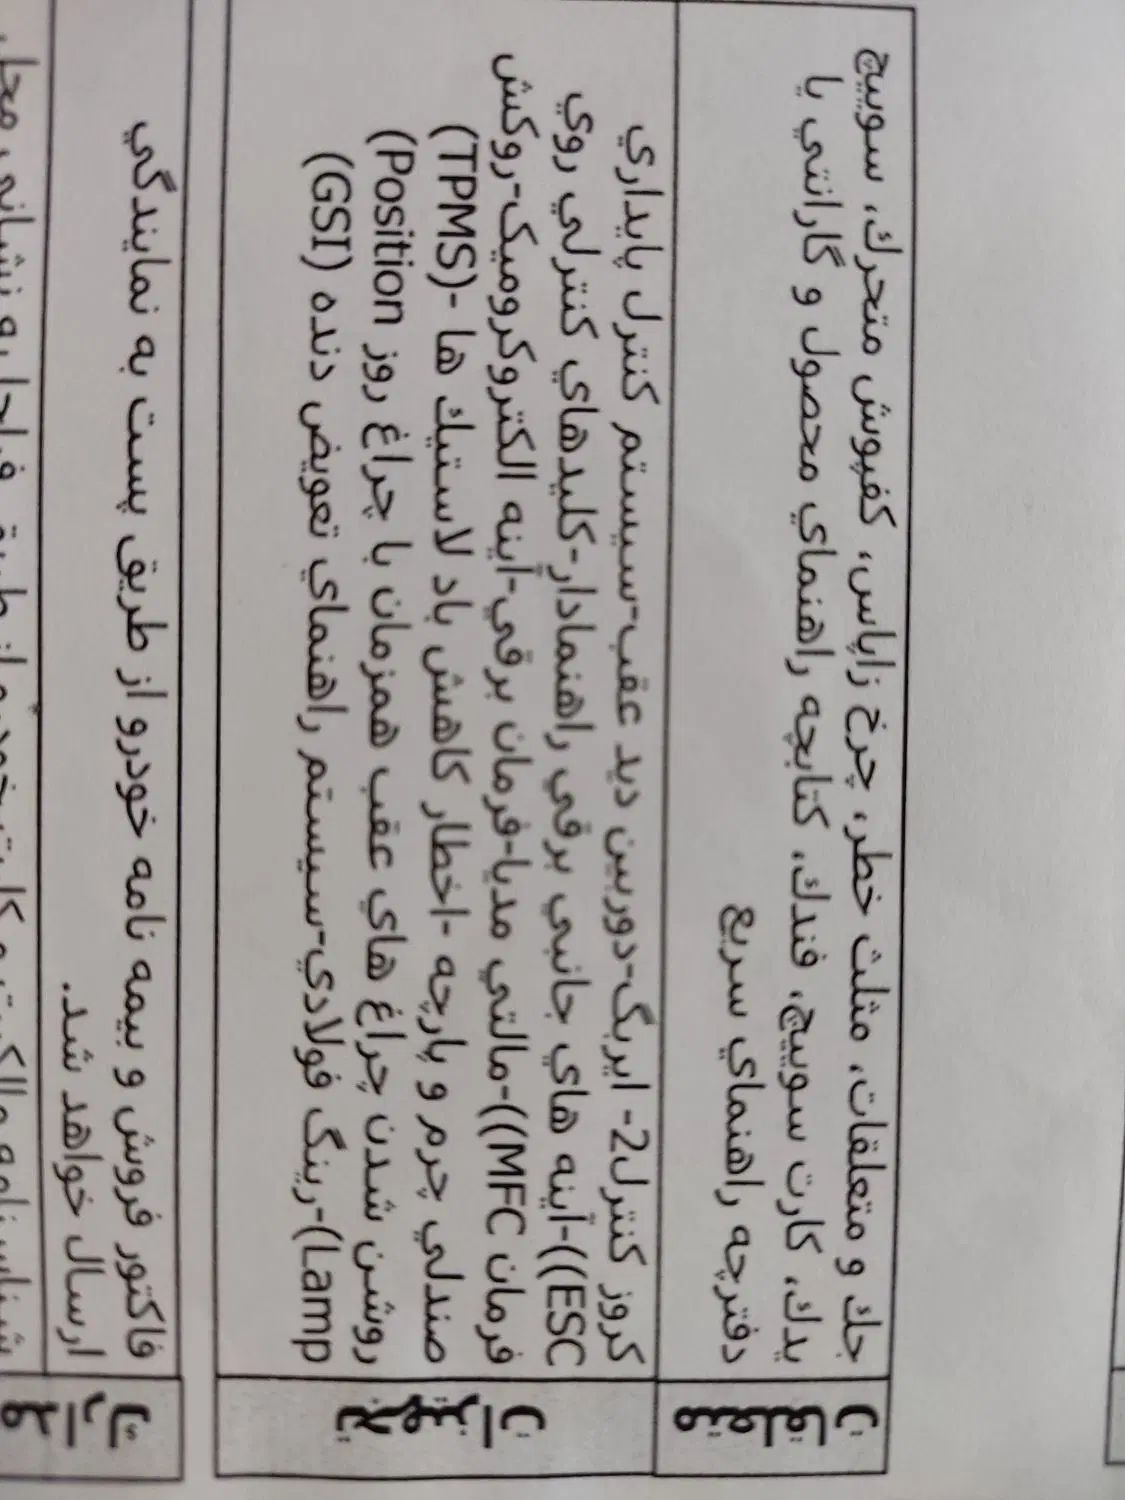 متعلقات
جك و متعلقات، مثلث خطر، چرخ زاپاس، كفپوش متحرك، سوييچ
يدك، كارت سوييچ، فندك، كتابچه راهنماي محصول و گارانتي يا
دفترچه راهنماي سريع
كروز كنترل2- ايربگ-دوربين ديد عقب-سيستم كنترل پايداري
ESC))-آينه هاي جانبي برقي راهنمادار-كليدهاي كنترلي روي
فرمان MFC))-مالتي مديا-فرمان برقي-آينه الكتروكروميك-روكش
صندلي چرم و پارچه -اخطار كاهش باد لاستيك ها -(TPMS)
روشن شدن چراغ هاي عقب همزمان با چراغ روز Position)
Lamp)-رينگ فولادي-سيستم راهنماي تعويض دنده (GSI)
فاكتور فروش و بيمه نامه خودرو از طريق پست به نمايندگي
ارسال خواهد شد.